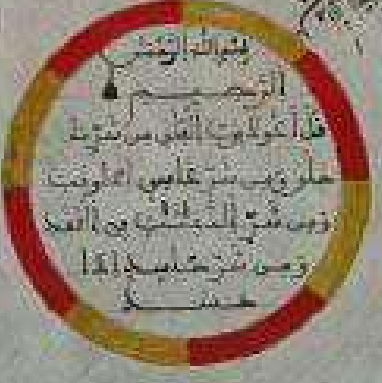 بسم الله الرحمن
الرحيم
قل أعوذ برب الفلق من شر ما
خلق ومن شر غاسق إذا وقب
ومن شر النفثت في العقد
ومن شر حاسد إذا
حسد